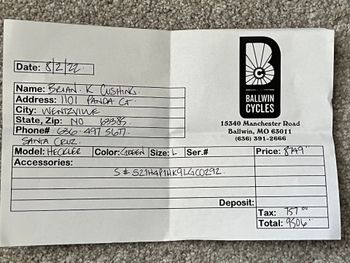 Date: 8/2/22
BALLWIN
CYCLES
15340 Manchester Road
Ballwin, MO 63011
(636) 391-2666
Name: BRIAN K CUSHING
Address: 1101 PANDA CT
City: WENTZVILLE
State, Zip: MO 63385
Phone# 636 497 5677
SANTA CRUZ
Model: HECKLER Color: GREEN Size: L Ser.# Price: 8749
Accessories:
S# S21H4P1HK9LGC0292
Deposit:
Tax: 757
Total: 9506